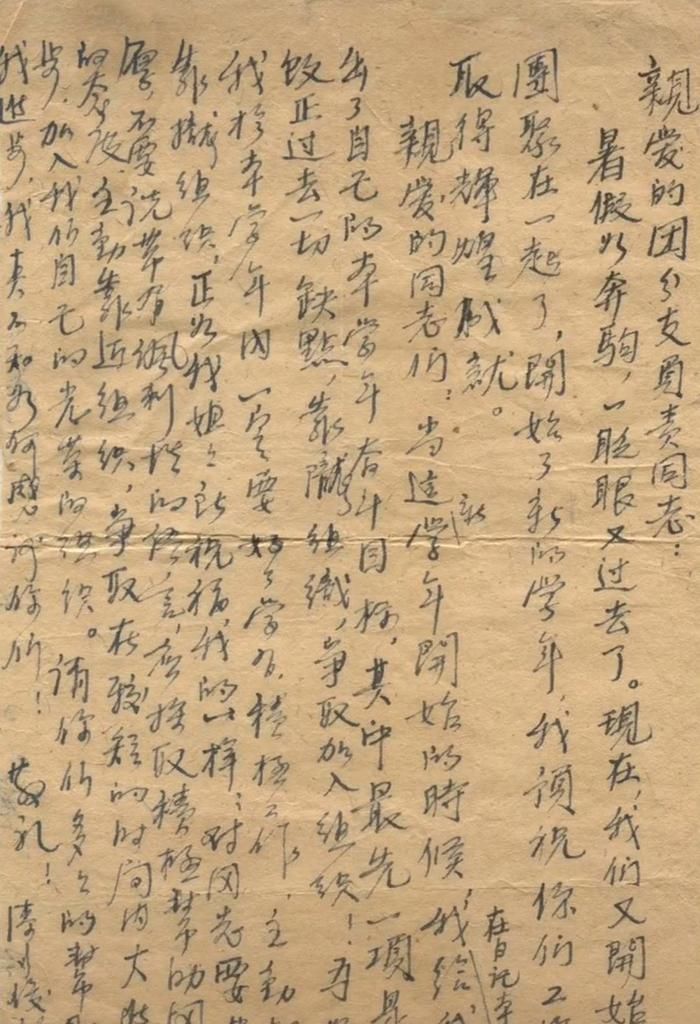 親爱的团分支負责同志：
暑假如奔駒，一眨眼又过去了。現在，我们又開始
團聚在一起了，開始了新的学年，我預祝你们工
取得輝煌成就。
親爱的同志们：当這新学年開始的時候，我给我
在日记本
出了自己的本学年奋斗目标，其中最先一項是
改正过去一切缺點，靠攏組織，争取加入組织！
我於本学年内一定要好々学习，積極工作，主動
靠攏組织，正如我姐々所祝福我的一样：对同志要
厚，不要说带有諷刺性的語言，应採取積極帮助同
的态度，主動靠近組织，争取在較短的时间内大
步，加入我们自己的光荣的組织。請你们多々的幫
我進步，我真不知如何感谢你们！ 敬礼！